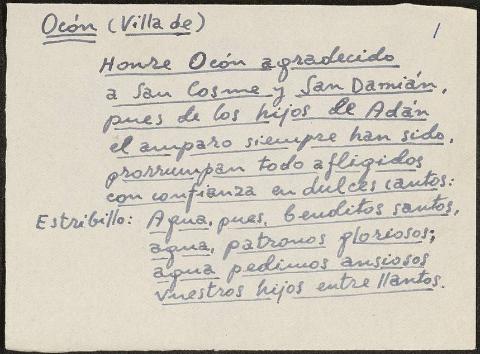 Ocón (Villa de)
1
Honre Ocón agradecido
a San Cosme y San Damián,
pues de los hijos de Adán
el amparo siempre han sido,
prorrumpan todo afligidos
con confianza en dulces cantos:
Estribillo: Agua, pues, benditos santos,
agua, patronos gloriosos;
agua pedimos ansiosos
vuestros hijos entre llantos.